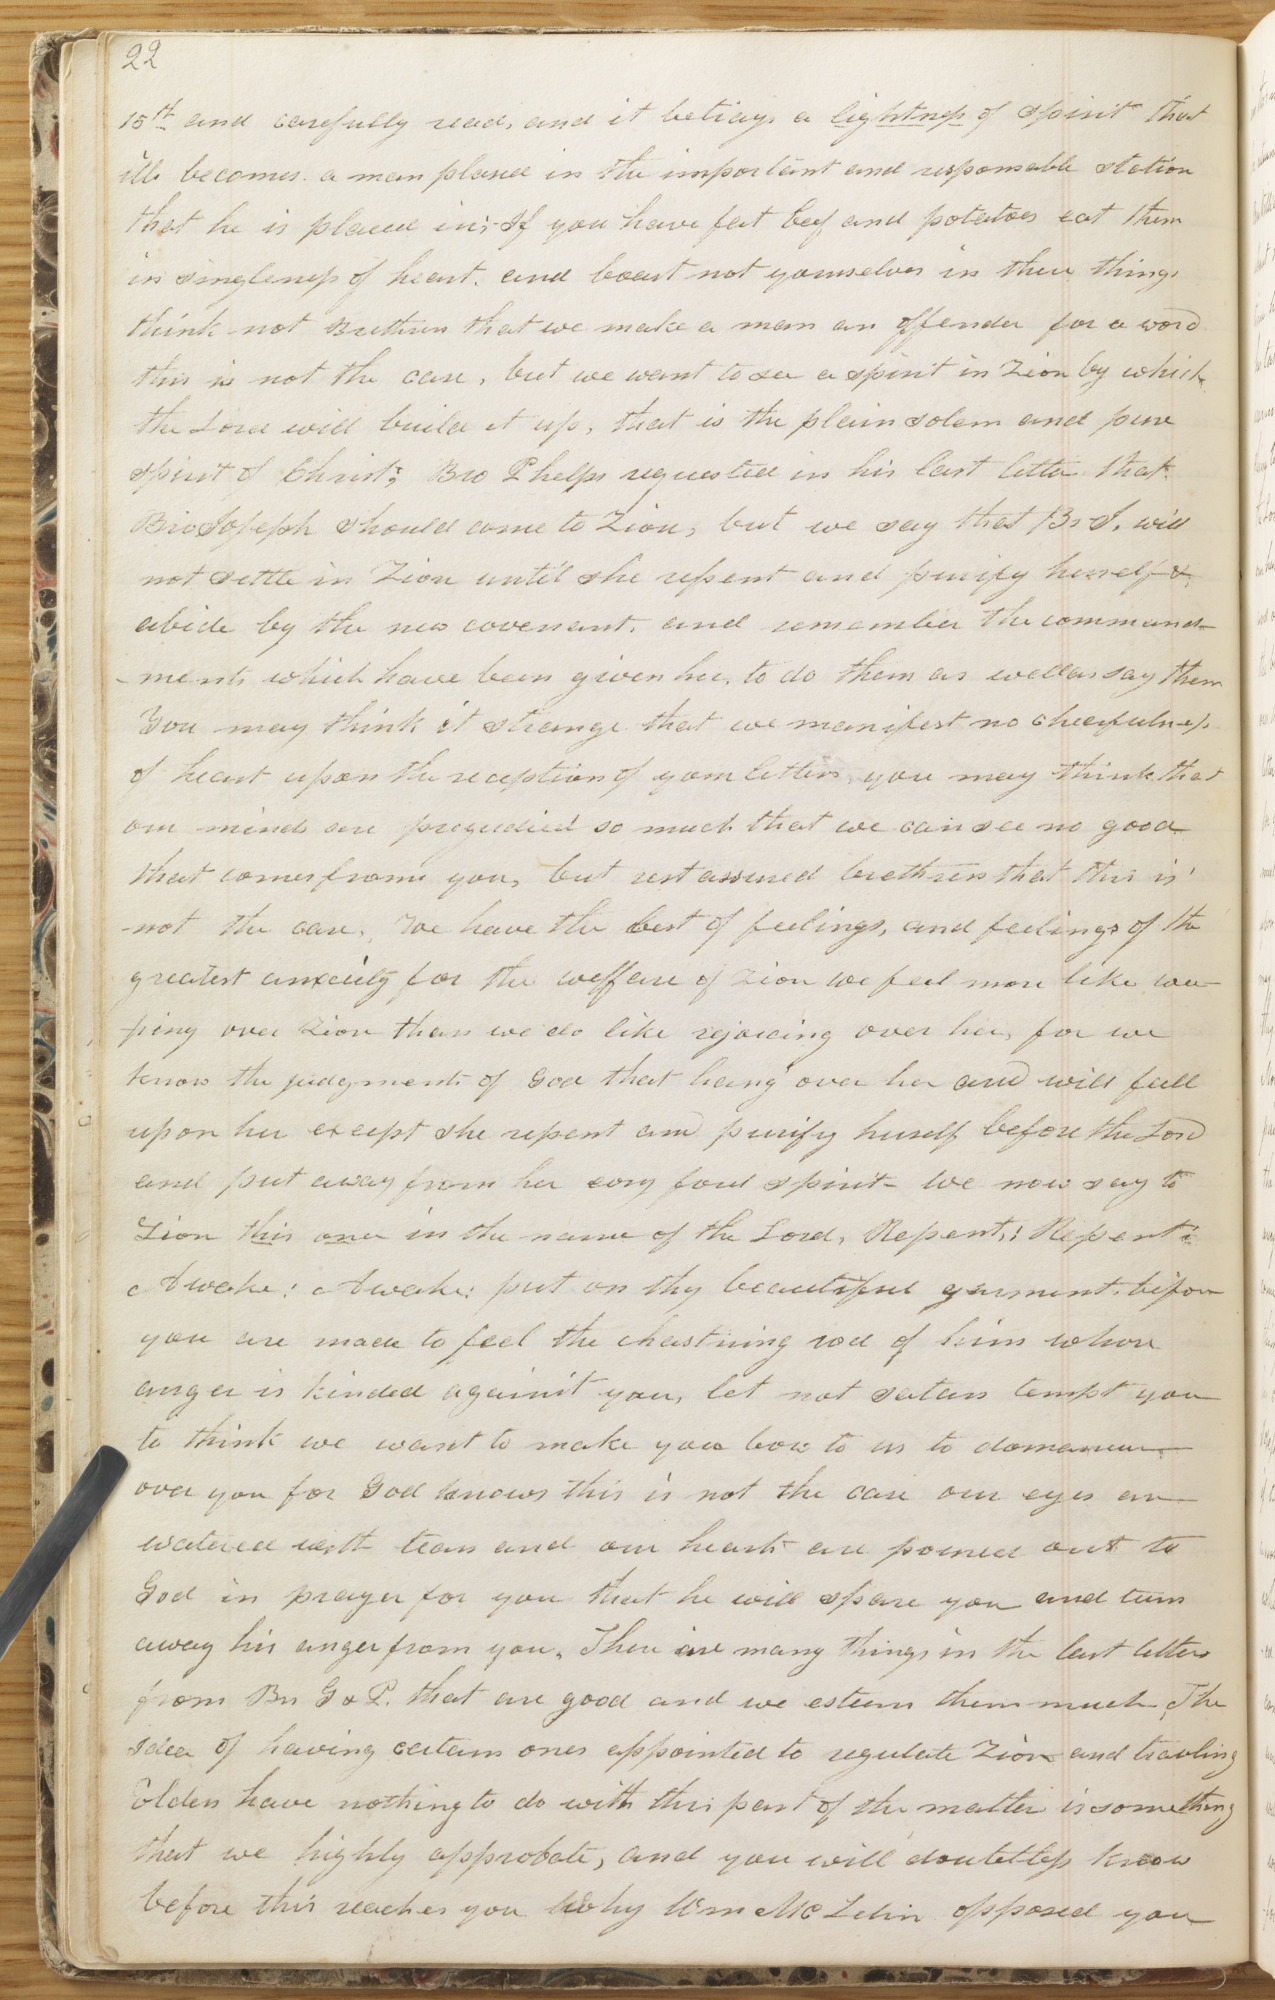 22
15th and carefully read, and it betrays a lightness of spirit that
ill becomes a man placed in the important and responsable station
that he is placed in; If you have fat beef and potatoes eat them
in singleness of heart. and boast not yourselves in these things
think not Brethren that we make a man an offender for a word
this is not the case, but we want to see a spirit in Zion by which
the Lord will build it up, that is the plain solem and pure
spirit of Christ; Bro Phelps requested in his last letter that
Bro Joseph should come to Zion, but we say that Br J. will
not settle in Zion until she repent and purify herself &
abide by the new covenant. and remember the command-
-ments which have been given her, to do them as well as say them
You may think it strange that we manifest no cheerfulness
of heart upon the reception of your letters you may think that
our minds are prejudied so much that we can see no good
that comes from you, but rest assured brethren that this is
not the case. We have the best of feelings, and feelings of the
greatest anxeity for the welfare of Zion we feel more like wee-
ping over Zion than we do like rejoicing over her, for we
know the judgments of God that hang over her and will fall
upon her except she repent and purify herself before the Lord
and put away from her evry foul spirit- We now say to
Zion this once in the name of the Lord, Repent,! Repent!
Awake! Awake! put on thy beautiful garments before
you are made to feel the chastning rod of him whose
anger is kinded against you, let not satan tempt you
to think we want to make you bow to us to domaneer
over you for God knows this is not the case our eyes are
watered with tears and our hearts are poured out to
God in prayer for you that he will spare you and turn
away his anger from you. There are many things in the last letters
from Brs G & P. that are good and we esteem them much, The
idea of having certain ones appointed to regulate Zion and travling
Elders have nothing to do with this part of the matter is something
that we highly approbate, and you will doubtless know
before this reaches you why Wm McLelin opposed you